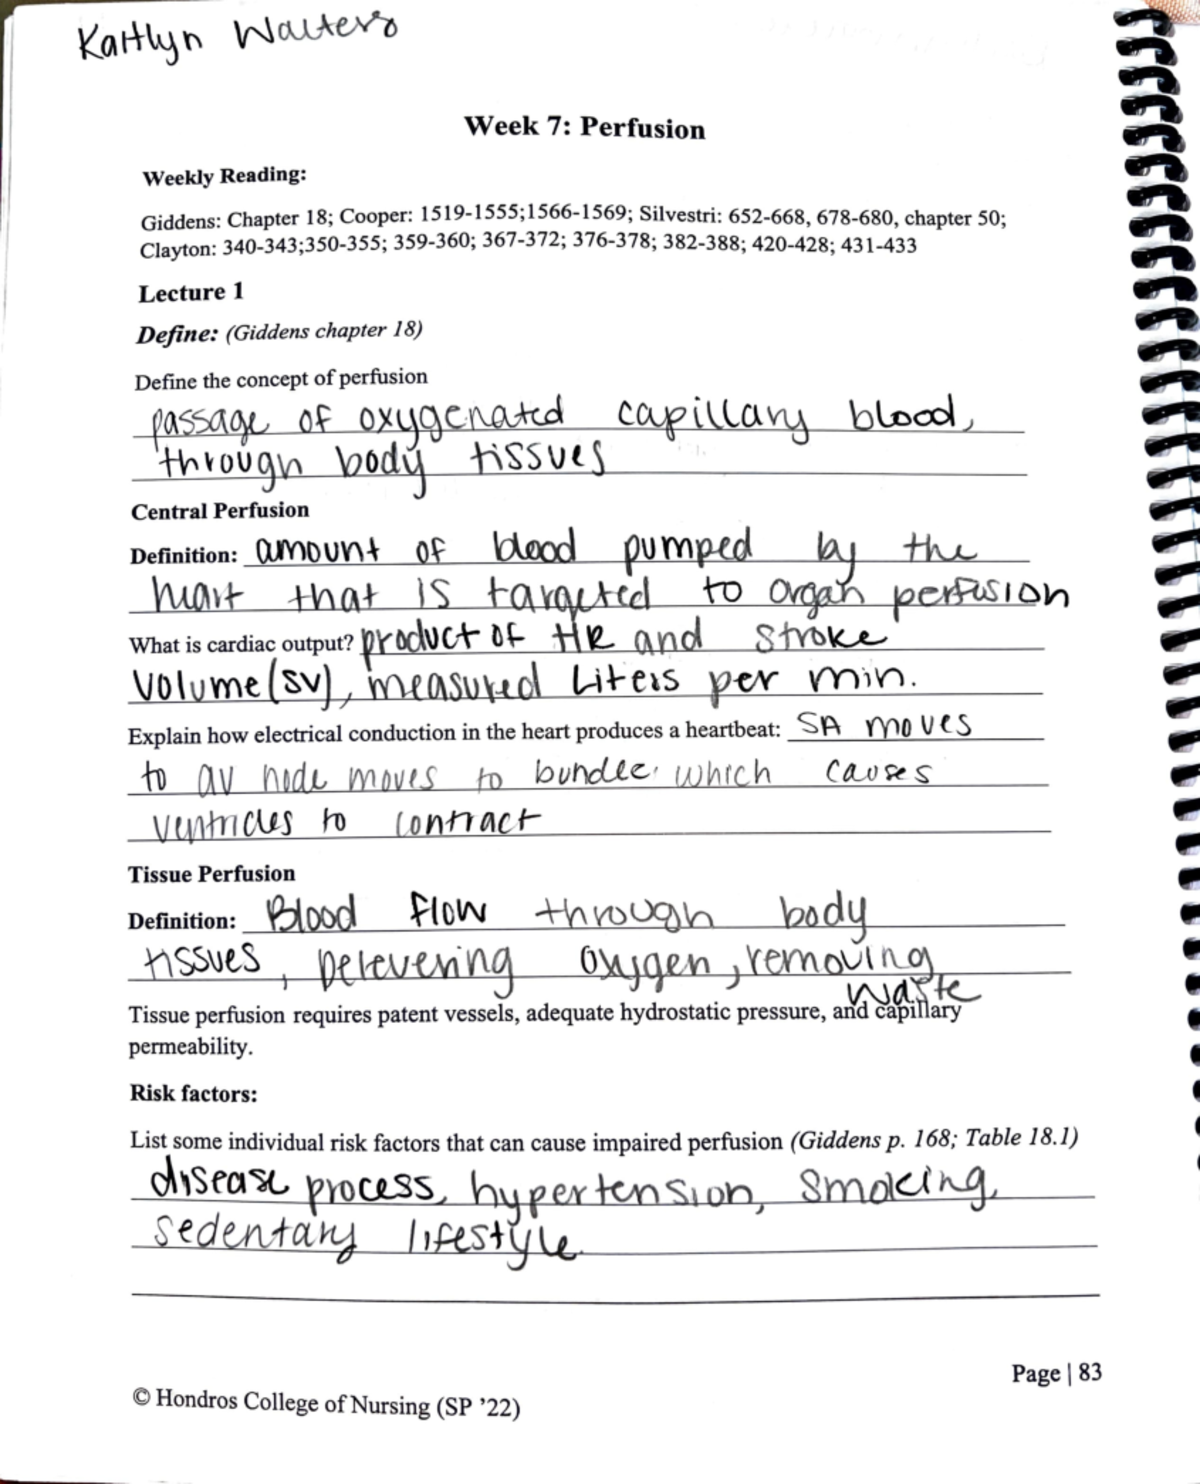 Kaitlyn Walters
Week 7: Perfusion
Weekly Reading:
Giddens: Chapter 18; Cooper: 1519-1555;1566-1569; Silvestri: 652-668, 678-680, chapter 50;
Clayton: 340-343;350-355; 359-360; 367-372; 376-378; 382-388; 420-428; 431-433
Lecture 1
Define: (Giddens chapter 18)
Define the concept of perfusion
passage of oxygenated capillary blood,
through body tissues
Central Perfusion
Definition: amount of blood pumped by the
heart that is targeted to organ perfusion
What is cardiac output? product of HR and stroke
volume(SV), measured Liters per min.
Explain how electrical conduction in the heart produces a heartbeat: SA moves
to av node moves to bundle which causes
ventricles to contract
Tissue Perfusion
Definition: Blood flow through body
tissues, Delevering oxygen, removing
waste
Tissue perfusion requires patent vessels, adequate hydrostatic pressure, and capillary
permeability.
Risk factors:
List some individual risk factors that can cause impaired perfusion (Giddens p. 168; Table 18.1)
disease process, hypertension, smoking,
sedentary lifestyle
Page | 83
© Hondros College of Nursing (SP ’22)